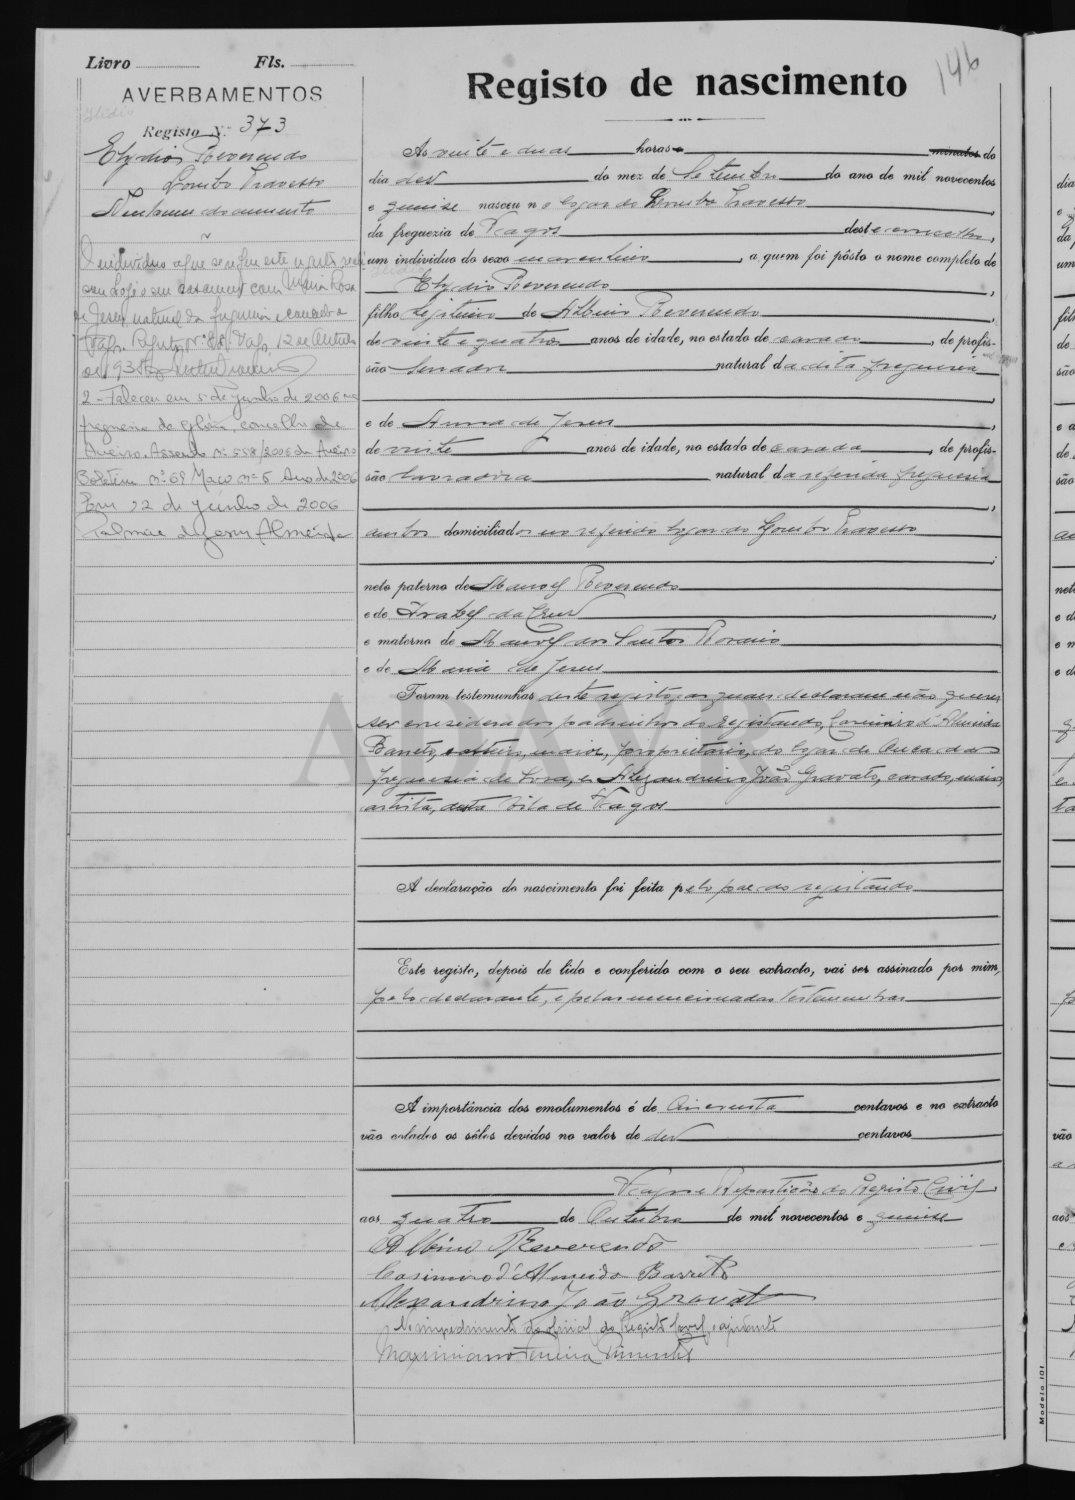 Livro Fls.
AVERBAMENTOS
Registo N.º 373
Elydio Reverendo
Lombo Travesso
Nenhum documento
2 - Faleceu em 5 de Junho de 2006 na
freguesia da Glória, concelho de
Aveiro. Assento nº 558/2006 de Aveiro
Boletim nº 69 Maço nº 5 Ano de 2006
Em 12 de Junho de 2006
146
Registo de nascimento
As vinte e duas horas minutos do
dia dez do mez de Setembro do ano de mil novecentos
e quinze nasceu no logar do Lombo Travesso
da freguezia de Vagos deste concelho,
um individuo do sexo masculino, a quem foi pôsto o nome completo de
Elydio Reverendo,
filho legitimo de Albino Reverendo,
de vinte e quatro anos de idade, no estado de casado, de profis-
são lavrador natural da dita freguesia
,
e de Anna de Jesus
de vinte anos de idade, no estado de casada, de profis-
são lavradora natural da referida freguesia
,
ambos domiciliados no referido logar do Lombo Travesso
;
neto paterno de Manoel Reverendo
e de Izabel da Cruz,
e materno de Manoel dos Santos
e de Maria de Jesus
Foram testemunhas deste registo, as quaes declararam não querer
ser considerados padrinhos do registando, Casimiro d'Almeida
Barreto, maior, proprietario, do logar de Ouca da
freguesia de Soza, e Alexandrino João Gravato, casado, maior,
artista, desta Vila de Vagos
A declaração do nascimento foi feita pelo pae do registando
Este registo, depois de lido e conferido com o seu extracto, vai ser assinado por mim,
pelo declarante, e pelas mencionadas testemunhas
A importância dos emolumentos é de Cincoenta centavos e no extracto
vão colados os sêlos devidos no valor de dez centavos
Vagos e Repartição do Registo Civil,
aos quatro de Outubro de mil novecentos e quinze
Albino Reverendo
Casimiro d'Almeida Barreto
Alexandrino João Gravato
No impedimento do oficial do Registo Civil, o ajudante
Maximiano Ferreira Pimentel
ADAVR
Modelo 101